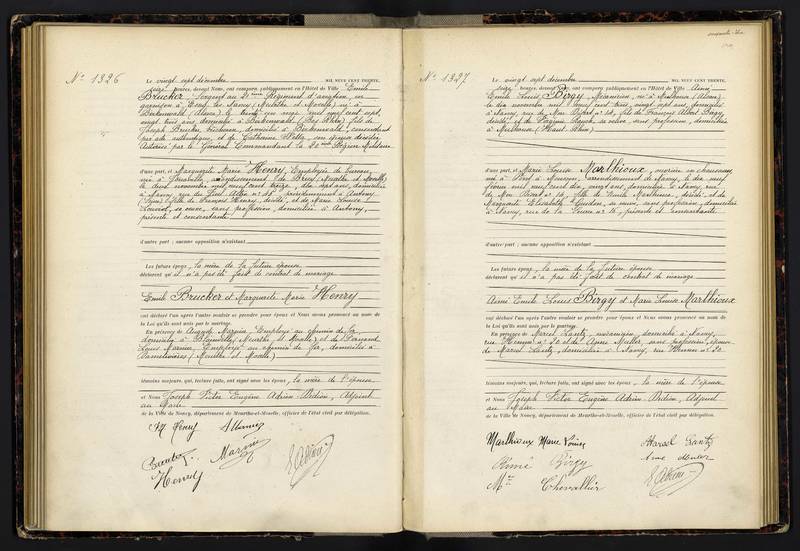 N° 1326
Le vingt sept décembre MIL NEUF CENT TRENTE,
seize heures, devant Nous, ont comparu publiquement en l'Hôtel de Ville Emile
Brucker, Sergent au 21ème Régiment d'aviation, en
garnison à Essey les Nancy (Meurthe et Moselle) né à
Birkenwald (Alsace) le trente un mai mil neuf cent sept,
vingt trois ans domicilié à Birkenwald (Bas Rhin) fils de
Joseph Brucker, domicilié à Birkenwald, consentant
par acte authentique, et de Catherine son épouse décédée
Autorisé par le Général Commandant la 20ème Région Militaire
d'une part, et Marguerite Marie Henry, Employée de bureau,
née à arrondissement de Briey (Meurthe et Moselle)
le neuf novembre mil neuf cent treize, dix sept ans, domiciliée
à Nancy, rue précédemment à Antony
(Seine) fille de François Henry, décédé, et de Marie Louise
sa veuve, sans profession, domiciliée à Antony,
présente et consentante
d'autre part ; aucune opposition n'existant
Les futurs époux, la mère de la future épouse
déclarent qu'il n'a pas été fait de contrat de mariage
Emile Brucker et Marguerite Marie Henry
ont déclaré l'un après l'autre vouloir se prendre pour époux et Nous avons prononcé au nom de
la Loi qu'ils sont unis par le mariage.
En présence de Auguste Margine Employé au chemin de fer
domicilié à Blainville (Meurthe et Moselle) et de Fernand
Louis Employé au chemin de fer, domicilié à
Damelevières (Meurthe et Moselle)
témoins majeurs, qui, lecture faite, ont signé avec les époux, la mère de l'épouse
et Nous Joseph Victor Eugène Adrien Adjoint
au Maire
de la Ville de Nancy, département de Meurthe-et-Moselle, officier de l'état civil par délégation.
M Henry
Brucker
Margine
Henry
N° 1327
Le vingt sept décembre MIL NEUF CENT TRENTE,
seize heures, devant Nous, ont comparu publiquement en l'Hôtel de Ville Aimé
Emile Louis Birgy, Mécanicien, né à Mulhouse (Alsace)
le dix novembre mil neuf cent trois, vingt sept ans, domicilié
à Nancy, rue de Mon Désert n° 14, fils de François Albert Birgy,
décédé, et de sa veuve, sans profession, domiciliée
à Mulhouse (Haut Rhin)
d'une part, et Marie Louise Marthioux, ouvrière en chaussures,
née à arrondissement de Nancy, le dix neuf
février mil neuf cent dix, vingt ans, domiciliée à Nancy rue
de Mon Désert n° 14, fille de Emile Marthioux, décédé, et de
Marguerite Elisabeth sa veuve, sans profession, domiciliée
à Nancy, rue de la n° 16, présente et consentante
d'autre part ; aucune opposition n'existant
Les futurs époux, la mère de la future épouse
déclarent qu'il n'a pas été fait de contrat de mariage
Aimé Emile Louis Birgy et Marie Louise Marthioux
ont déclaré l'un après l'autre vouloir se prendre pour époux et Nous avons prononcé au nom de
la Loi qu'ils sont unis par le mariage.
En présence de Marcel Lantz, mécanicien, domicilié à Nancy,
rue n° 20 et de Anne Muller sans profession, épouse
de Marcel Lantz, domiciliée à Nancy, rue n° 20
témoins majeurs, qui, lecture faite, ont signé avec les époux, la mère de l'épouse
et Nous Joseph Victor Eugène Adrien Adjoint
au Maire
de la Ville de Nancy, département de Meurthe-et-Moselle, officier de l'état civil par délégation.
Marthioux Marie Louise
Marcel Lantz
Aimé Birgy
Anne Muller
Mme Chevallier